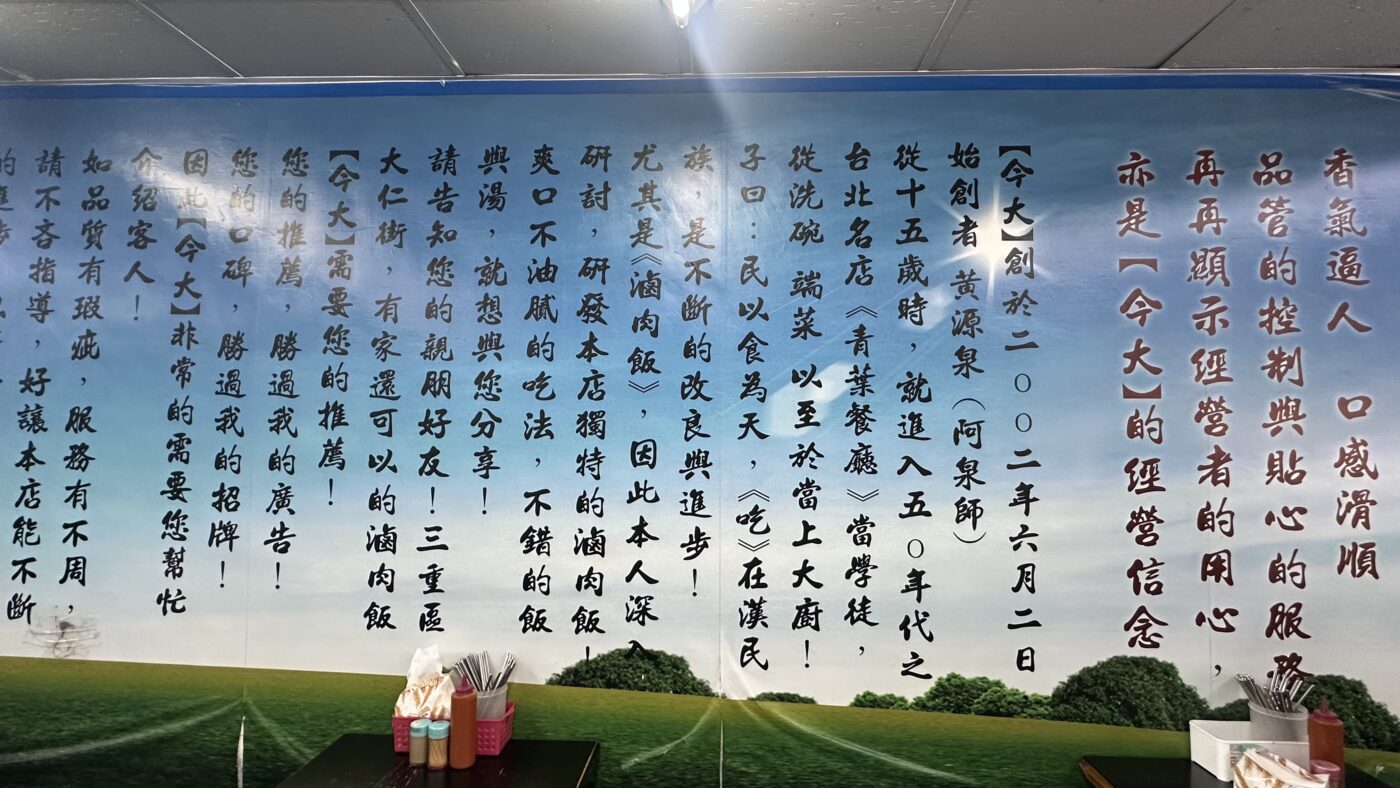 香氣逼人 口感滑順
品管的控制與貼心的服務
再再顯示經營者的用心，
亦是【今大】的經營信念
【今大】創於二○○二年六月二日
始創者 黃源泉（阿泉師）
從十五歲時，就進入五○年代之
台北名店《青葉餐廳》當學徒，
從洗碗 端菜 以至於當上大廚！
子曰：民以食為天，《吃》在漢民
族，是不斷的改良與進步！
尤其是《滷肉飯》，因此本人深入
研討，研發本店獨特的滷肉飯！
爽口不油膩的吃法，不錯的飯
與湯，就想與您分享！
請告知您的親朋好友！三重區
大仁街，有家還可以的滷肉飯
【今大】需要您的推薦！
您的推薦，勝過我的廣告！
您的口碑，勝過我的招牌！
因此【今大】非常的需要您幫忙
介紹客人！
如品質有瑕疵，服務有不周，
請不吝指導，好讓本店能不斷
的進步